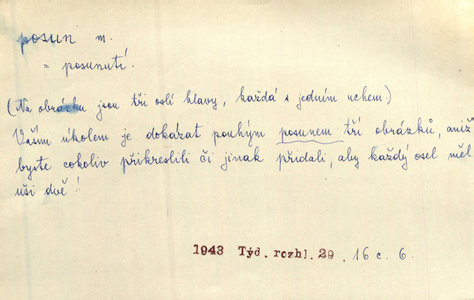 posun m.
= posunutí.
(Na obrázku jsou tři oslí hlavy, každá s jedním uchem.)
Vaším úkolem je dokázat pouhým posunem tří obrázků, aniž
byste cokoliv přikreslili či jinak přidali, aby každý osel měl
uši dvě!
1943 Týd. rozhl. 29. 16 c. 6.